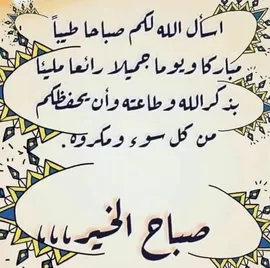 اسأل الله لكم صباحا طيباً
مباركا ويوما جميلا رائعا مليئا
بذكر الله وطاعته وأن يحفظكم
من كل سوء ومكروه .
صباح الخير،،،،